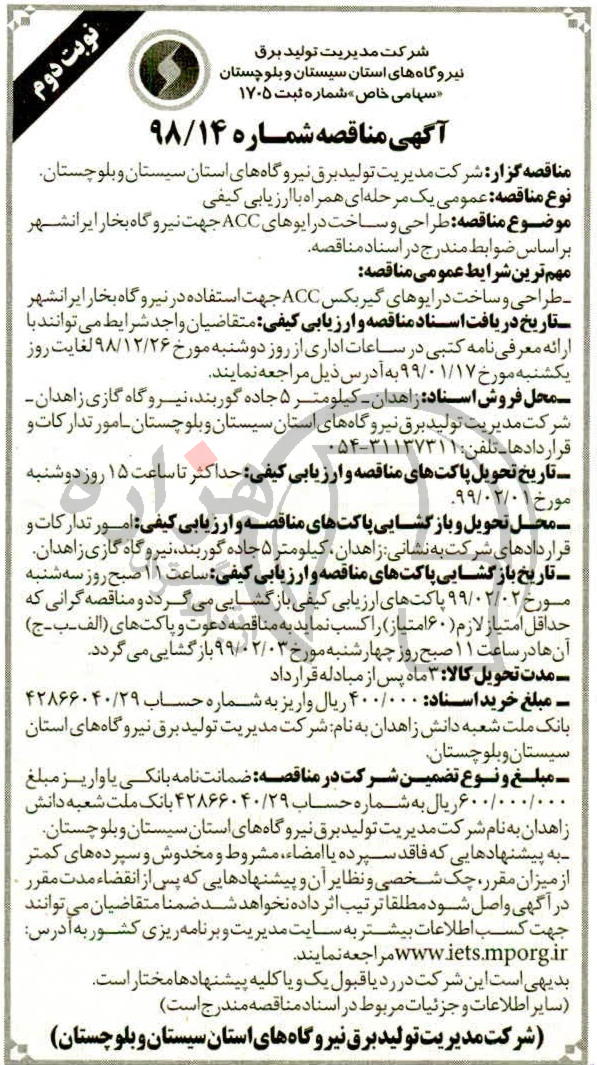 نوبت دوم
شرکت مدیریت تولید برق
نیروگاه‌های استان سیستان و بلوچستان
«سهامی خاص» شماره ثبت ۱۷۰۵
آگهی مناقصه شماره ۹۸/۱۴
مناقصه گزار: شرکت مدیریت تولید برق نیروگاه‌های استان سیستان و بلوچستان.
نوع مناقصه: عمومی یک مرحله‌ای همراه با ارزیابی کیفی
موضوع مناقصه: طراحی و ساخت درایوهای ACC جهت نیروگاه بخار ایرانشهر
بر اساس ضوابط مندرج در اسناد مناقصه.
مهم‌ترین شرایط عمومی مناقصه:
ـ طراحی و ساخت درایوهای گیربکس ACC جهت استفاده در نیروگاه بخار ایرانشهر
ـ تاریخ دریافت اسناد مناقصه و ارزیابی کیفی: متقاضیان واجد شرایط می‌توانند با
ارائه معرفی‌نامه کتبی در ساعات اداری از روز دوشنبه مورخ ۹۸/۱۲/۲۶ لغایت روز
یکشنبه مورخ ۹۹/۰۱/۱۷ به آدرس ذیل مراجعه نمایند.
ـ محل فروش اسناد: زاهدان ـ کیلومتر ۵ جاده گوربند، نیروگاه گازی زاهدان ـ
شرکت مدیریت تولید برق نیروگاه‌های استان سیستان و بلوچستان ـ امور تدارکات و
قراردادها ـ تلفن: ۳۱۱۳۷۳۱۱-۰۵۴
ـ تاریخ تحویل پاکت‌های مناقصه و ارزیابی کیفی: حداکثر تا ساعت ۱۵ روز دوشنبه
مورخ ۹۹/۰۲/۰۱.
ـ محل تحویل و بازگشایی پاکت‌های مناقصه و ارزیابی کیفی: امور تدارکات و
قراردادهای شرکت به نشانی: زاهدان، کیلومتر ۵ جاده گوربند، نیروگاه گازی زاهدان.
ـ تاریخ بازگشایی پاکت‌های مناقصه و ارزیابی کیفی: ساعت ۱۱ صبح روز سه‌شنبه
مورخ ۹۹/۰۲/۰۲ پاکت‌های ارزیابی کیفی بازگشایی می‌گردد و مناقصه گرانی که
حداقل امتیاز لازم (۶۰ امتیاز) را کسب نماید به مناقصه دعوت و پاکت‌های (الف-ب-ج)
آن‌ها در ساعت ۱۱ صبح روز چهارشنبه مورخ ۹۹/۰۲/۰۳ بازگشایی می‌گردد.
ـ مدت تحویل کالا: ۳ ماه پس از مبادله قرارداد
ـ مبلغ خرید اسناد: ۴۰۰/۰۰۰ ریال واریز به شماره حساب ۴۲۸۶۶۰۴۰/۲۹
بانک ملت شعبه دانش زاهدان به نام: شرکت مدیریت تولید برق نیروگاه‌های استان
سیستان و بلوچستان.
ـ مبلغ و نوع تضمین شرکت در مناقصه: ضمانت‌نامه بانکی یا واریز مبلغ
۶۰۰/۰۰۰/۰۰۰ ریال به شماره حساب ۴۲۸۶۶۰۴۰/۲۹ بانک ملت شعبه دانش
زاهدان به نام شرکت مدیریت تولید برق نیروگاه‌های استان سیستان و بلوچستان.
ـ به پیشنهادهایی که فاقد سپرده یا امضاء، مشروط و مخدوش و سپرده‌های کمتر
از میزان مقرر، چک شخصی و نظایر آن و پیشنهادهایی که پس از انقضاء مدت مقرر
در آگهی واصل شود مطلقا ترتیب اثر داده نخواهد شد ضمنا متقاضیان می‌توانند
جهت کسب اطلاعات بیشتر به سایت مدیریت و برنامه ریزی کشور به آدرس:
www.iets.mporg.ir مراجعه نمایند.
بدیهی است این شرکت در رد یا قبول یک و یا کلیه پیشنهادها مختار است.
(سایر اطلاعات و جزئیات مربوط در اسناد مناقصه مندرج است)
(شرکت مدیریت تولید برق نیروگاه‌های استان سیستان و بلوچستان)